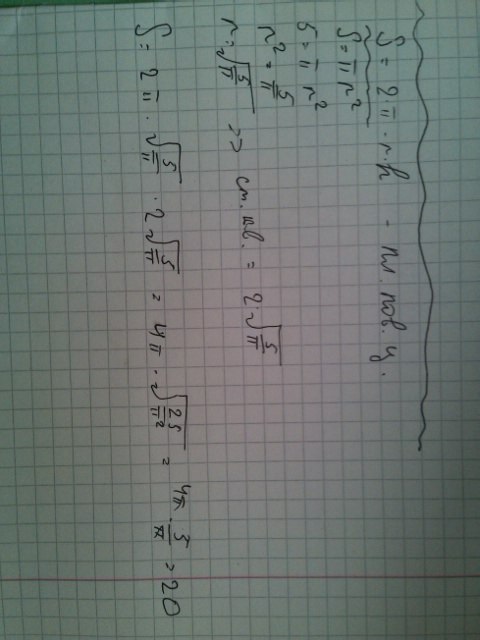 S = 2π · r · h - пл. пов. ц.
S = π r²
5 = π r²
r² = 5/π
r = √(5/π) >> ст. кв. = 2·√(5/π)
S = 2π · √(5/π) · 2√(5/π) = 4π · √(25/π²) = 4π · 5/π = 20